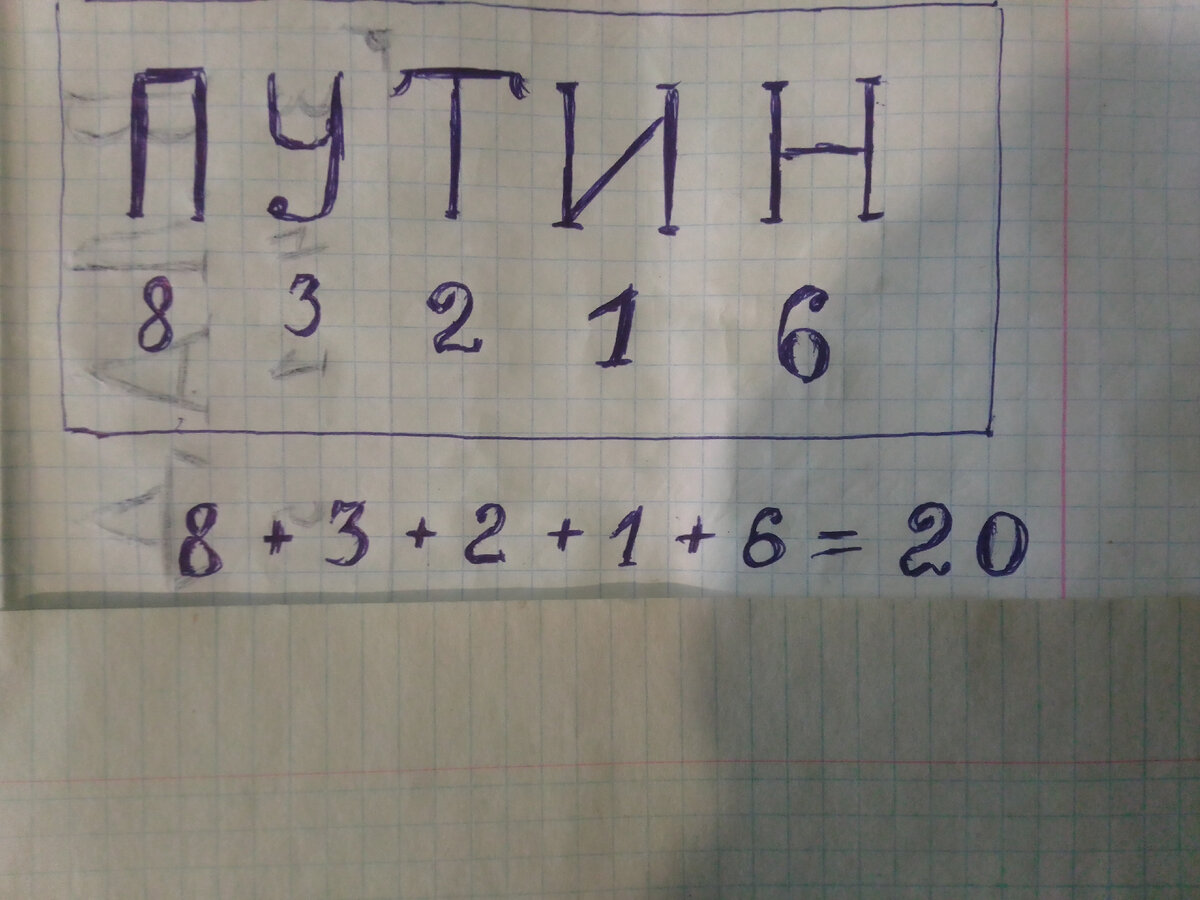 ПУТИН
8 3 2 1 6
8 + 3 + 2 + 1 + 6 = 20